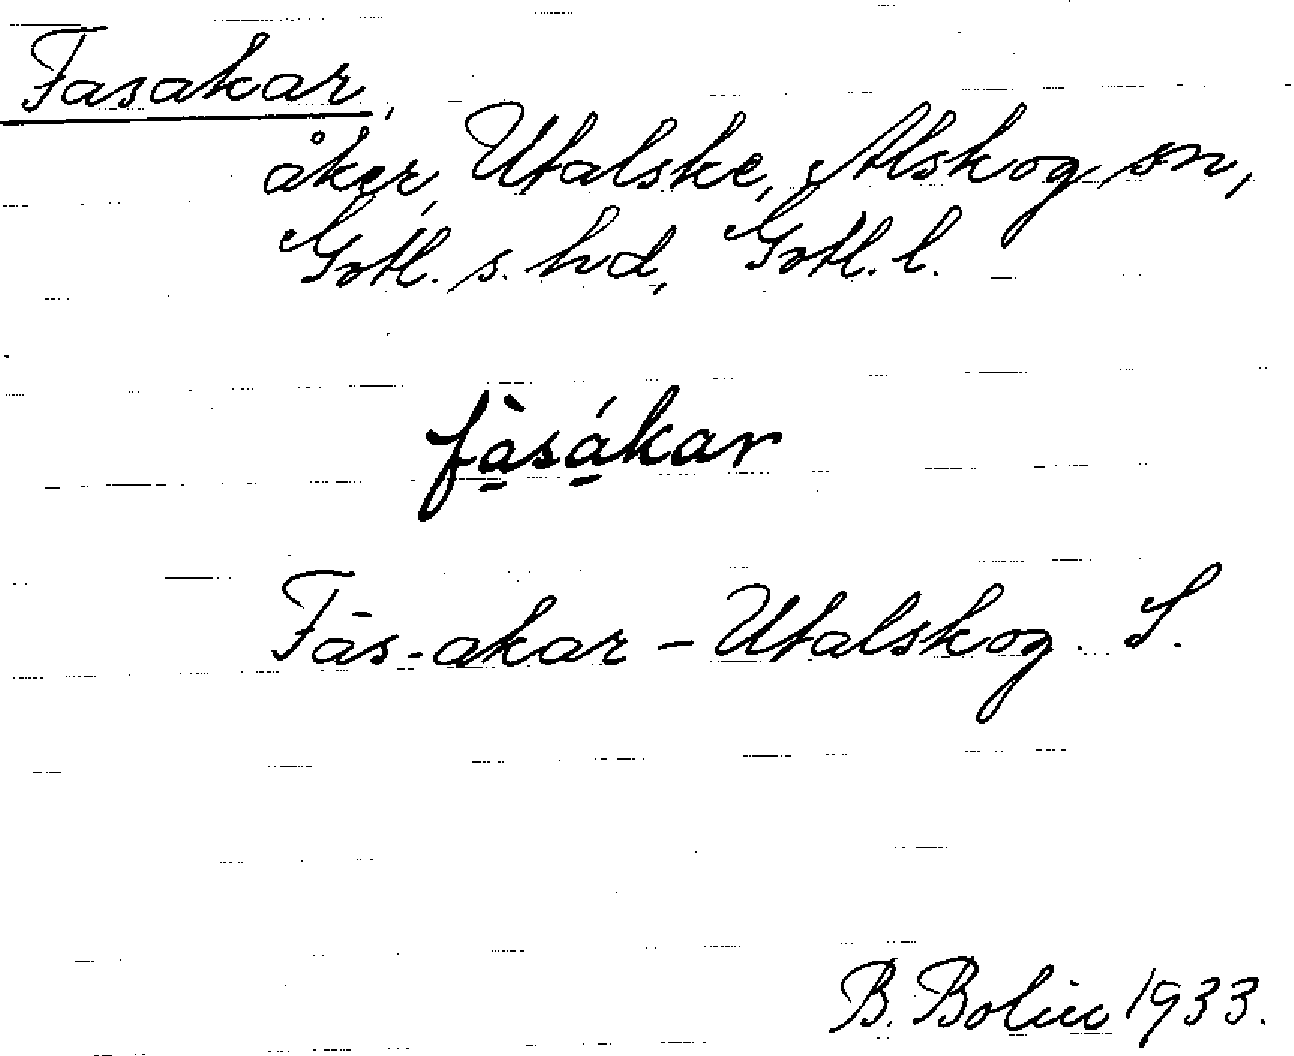 Fasakar,
åker, Utalske, Alskog sn,
Gotl. s. hd, Gotl. l.
fà̱sá̱kar
Fās-akar - Utalskog. S.
B. Bolin 1933.